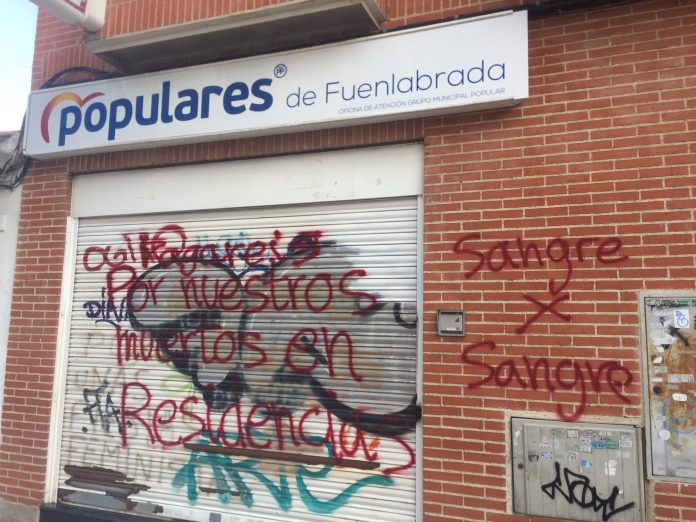 populares PP de Fuenlabrada
OFICINA DE ATENCIÓN GRUPO MUNICIPAL POPULAR
Pagareis
Por nuestros
muertos en
Residencias
Sangre
X
Sangre